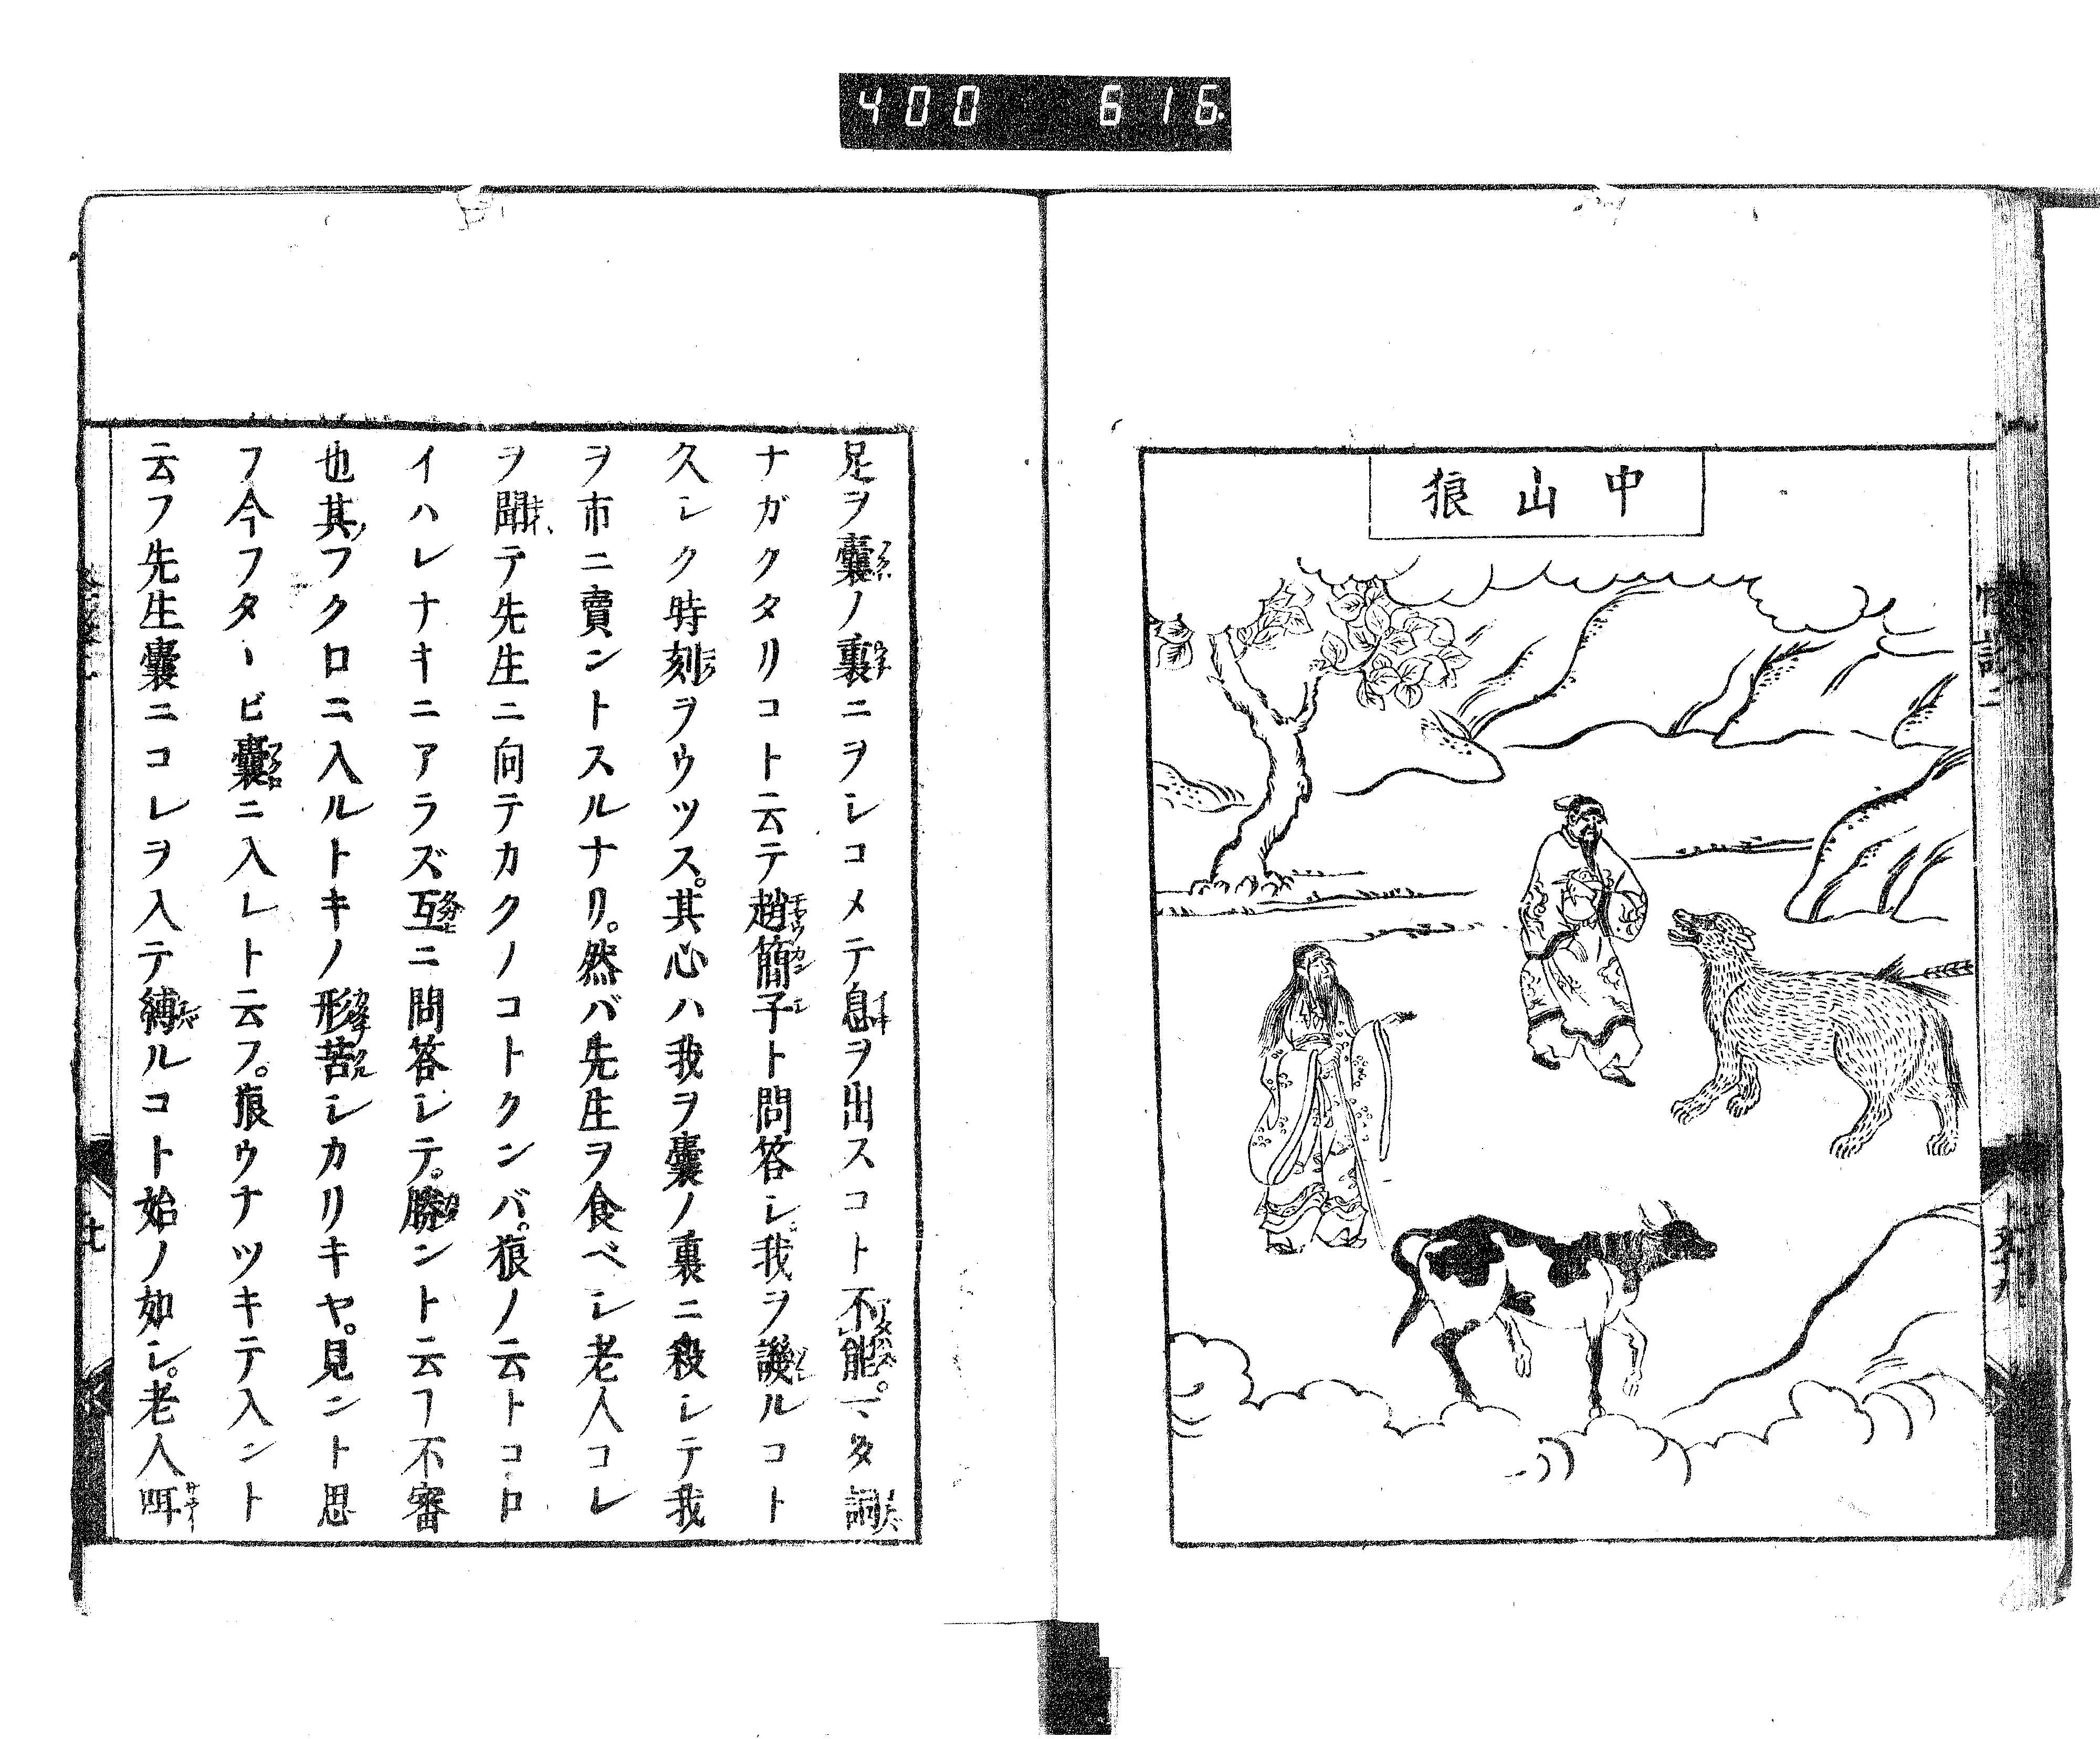 400 616
中山狼
足ヲ嚢ノ裏ニヲシコメテ息ヲ出スコト不能。マタ詞
ナガクタリコト云テ趙簡子ト問答シ我ヲ譏ルコト
久シク時刻ヲウツス。其心ハ我ヲ嚢ノ裏ニ殺シテ我
ヲ市ニ賣ントスルナリ。然バ先生ヲ食ベシ老人コレ
ヲ聞テ先生ニ向テカクノコトクンバ。狼ノ云トコロ
イハレナキニアラズ互ニ問答シテ。勝ント云フ不審
也其フクロニ入ルトキノ形苦シカリキヤ。見ント思
フ今フタヽビ嚢ニ入レト云フ。狼ウナツキテ入ント
云フ先生嚢ニコレヲ入テ縛ルコト始ノ如シ。老人咡